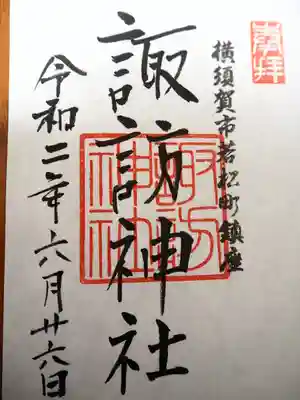 奉拝
横須賀市若松町鎮座
諏訪神社
諏訪
神社
令和二年六月廿六日